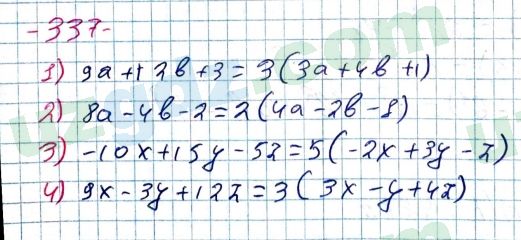 -337-
1) 9a+12b+3=3(3a+4b+1)
2) 8a-4b-2=2(4a-2b-8)
3) -10x+15y-5z=5(-2x+3y-z)
4) 9x-3y+12z=3(3x-y+4z)